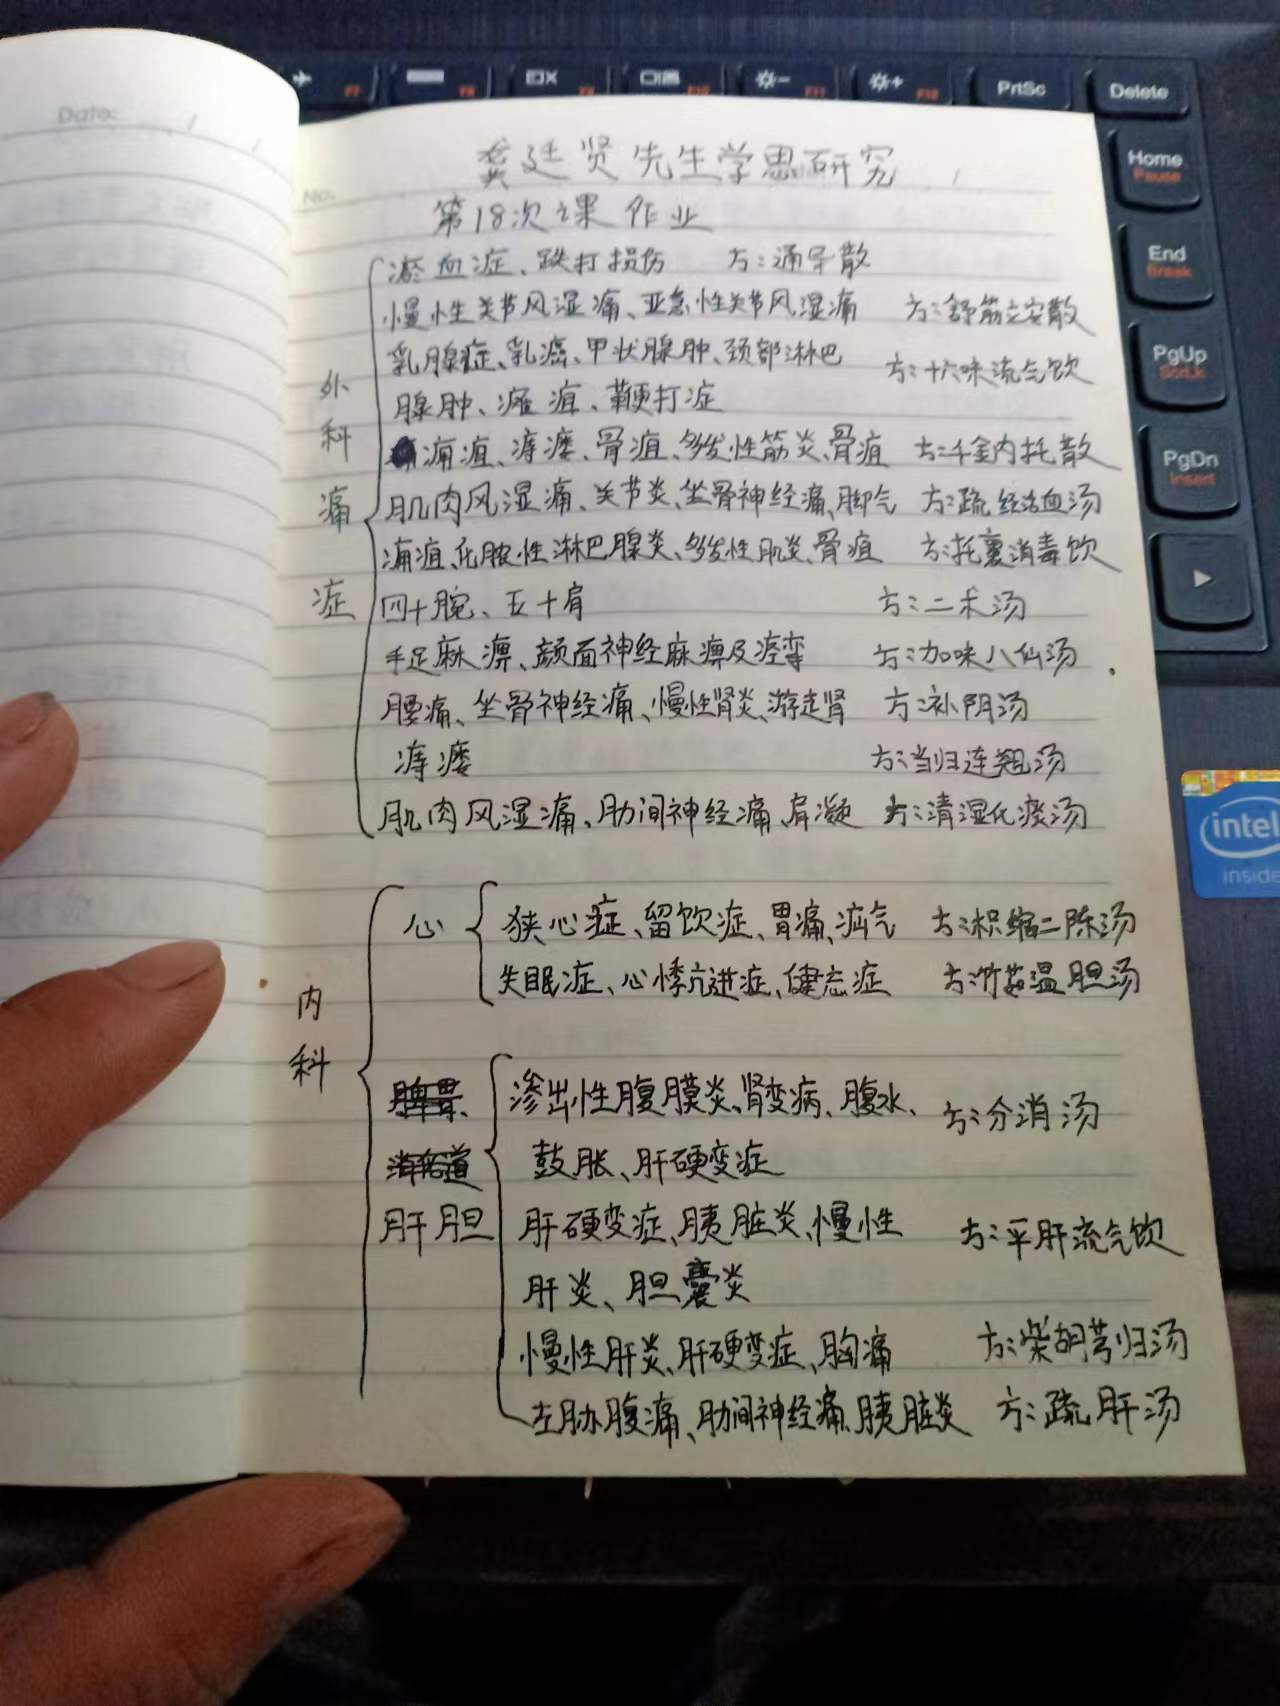 Date:
No.
龚廷贤先生学思研究
第18次课作业
外科痛症
瘀血症、跌打损伤 方:通导散
慢性关节风湿痛、亚急性关节风湿痛 方:舒筋立安散
乳腺症、乳癌、甲状腺肿、颈部淋巴
腺肿、瘰疽、鞭打症 方:十六味流气饮
痈疽、痔瘘、骨疽、多发性筋炎、骨疽 方:千金内托散
肌肉风湿痛、关节炎、坐骨神经痛、脚气 方:疏经活血汤
痈疽、化脓性淋巴腺炎、多发性肌炎、骨疽 方:托裏消毒饮
四十腕、五十肩 方:二术汤
手足麻痹、颜面神经麻痹及痉挛 方:加味八仙汤
腰痛、坐骨神经痛、慢性肾炎、游走肾 方:补阴汤
痔瘘 方:当归连翘汤
肌肉风湿痛、肋间神经痛、肩凝 方:清湿化痰汤
内科
心
狭心症、留饮症、胃痛、疝气 方:枳缩二陈汤
失眠症、心悸亢进症、健忘症 方:竹茹温胆汤
肝胆
渗出性腹膜炎、肾变病、腹水、
鼓胀、肝硬变症 方:分消汤
肝硬变症、胰脏炎、慢性
肝炎、胆囊炎 方:平肝流气饮
慢性肝炎、肝硬变症、胸痛 方:柴胡芎归汤
左胁腹痛、肋间神经痛、胰脏炎 方:疏肝汤
F7
F8
F9
F10
F11
F12
PrtSc
Delete
Home
Pause
End
Break
PgUp
ScrLk
PgDn
Insert
intel
inside